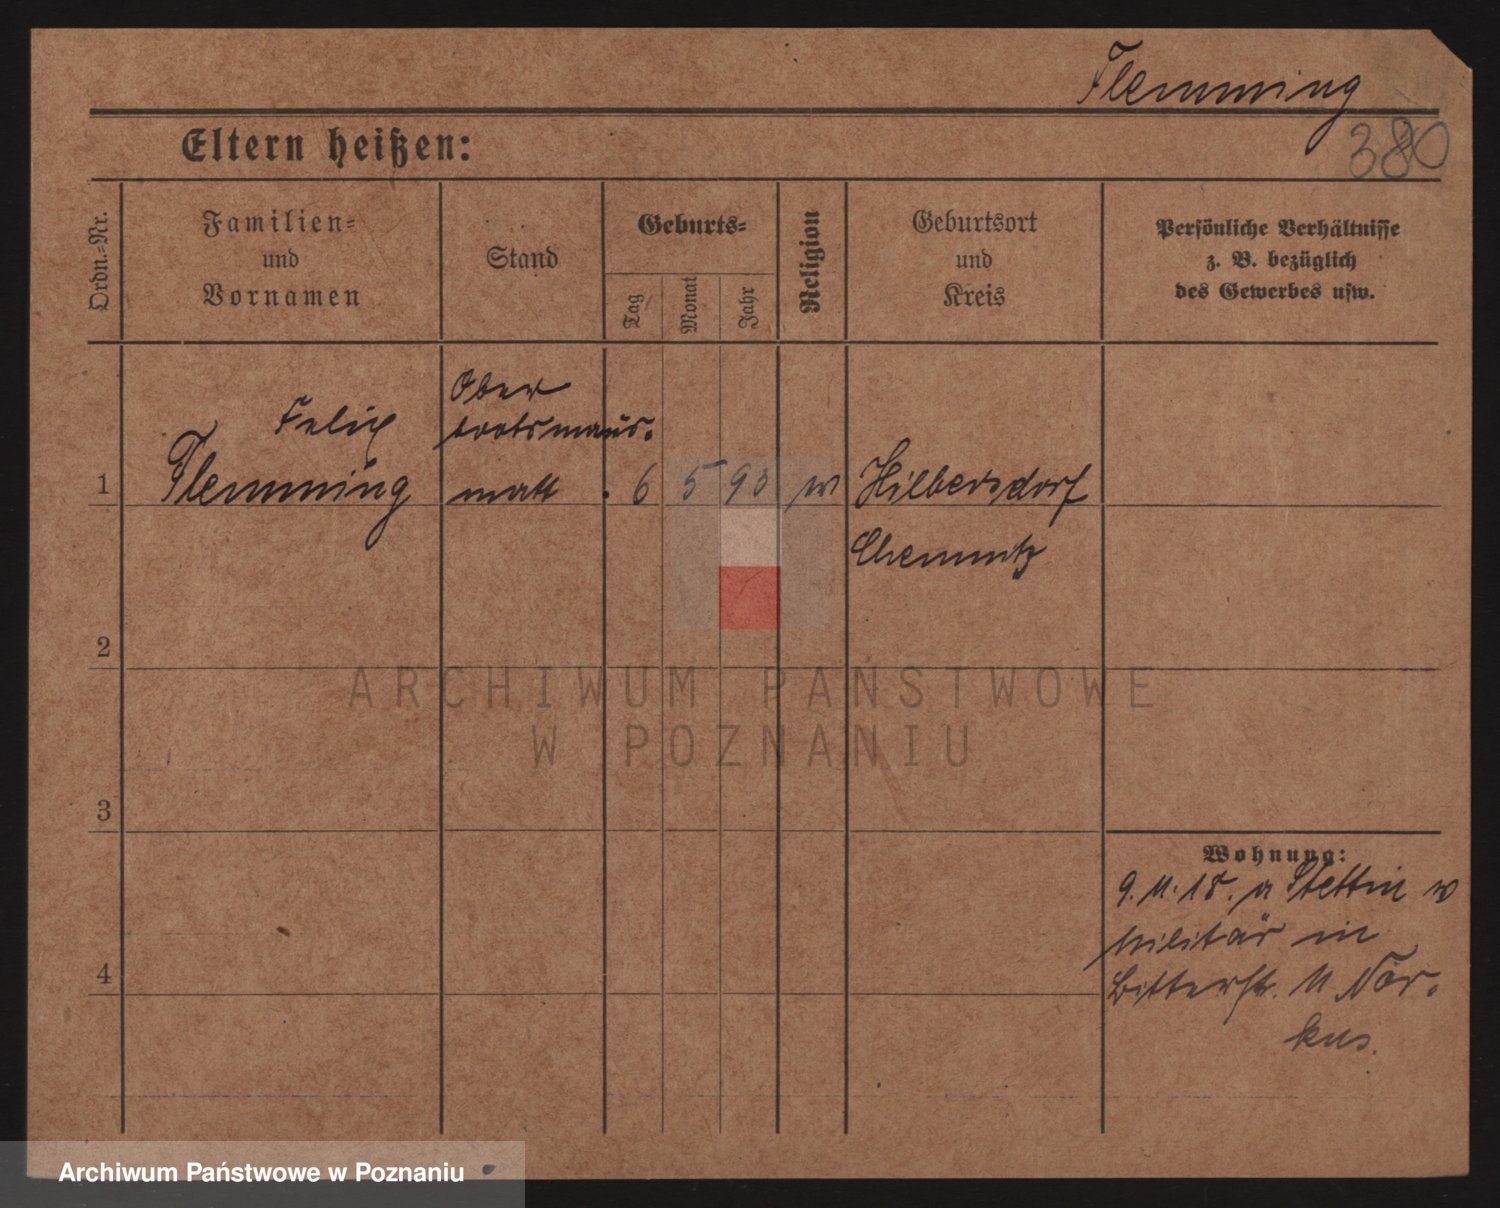 Flemming
380
Eltern heißen:
Ordn.-Nr.
Familien-
und
Vornamen
Stand
Geburts-
Tag
Monat
Jahr
Religion
Geburtsort
und
Kreis
Persönliche Verhältnisse
z. B. bezüglich
des Gewerbes usw.
1
Felix
Flemming
Ober
bootsmans.
matt
6 5 93
Hilbersdorf
Chemnitz
2
3
4
Wohnung:
9. 11. 18. a Stettin
Militär in
Bitterstr. 11
kus.
ARCHIWUM PAŃSTWOWE
W POZNANIU
Archiwum Państwowe w Poznaniu